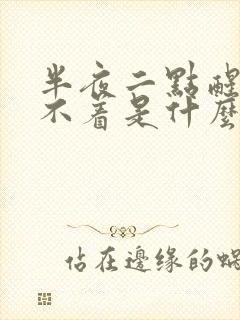 半夜二點醒
不着是什麼
佔在邊缘的蝸